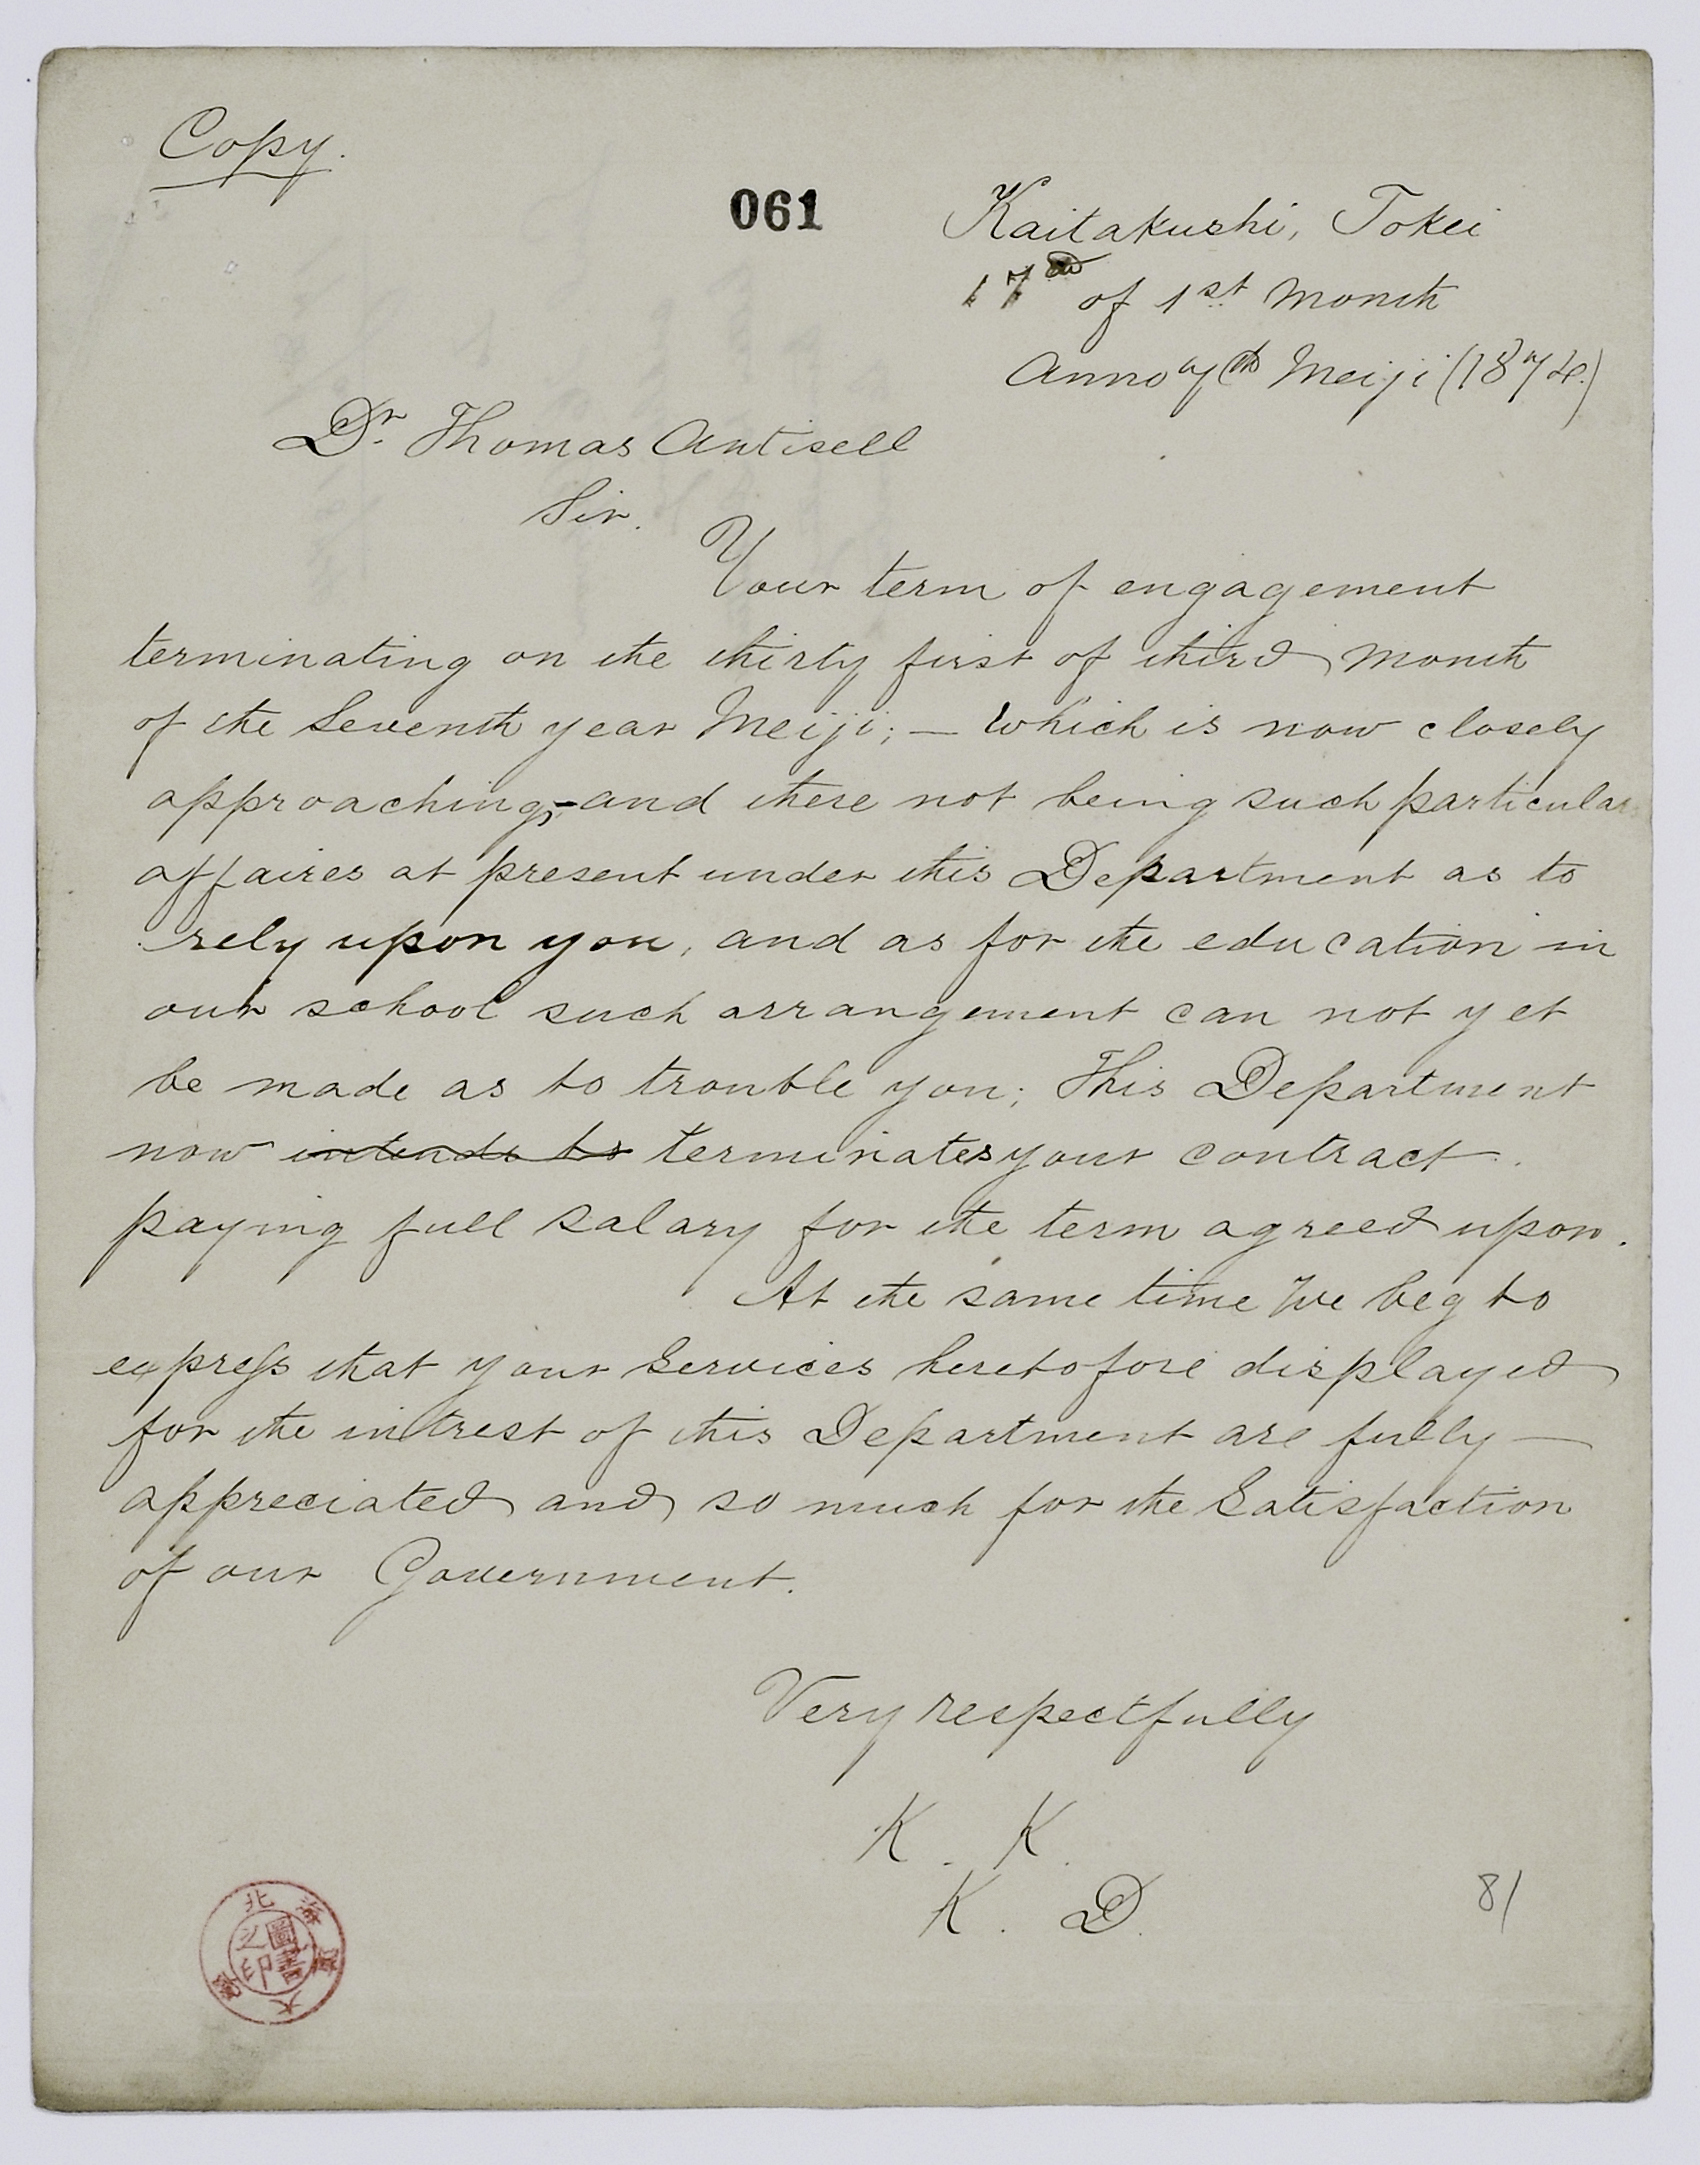 Copy.
061
Kaitakushi, Tokei
17th of 1st month
Anno 7th Meiji (1874.)
Dr. Thomas Antisell
Sir.
Your term of engagement
terminating on the thirty first of third month
of the Seventh year Meiji; — which is now closely
approaching, - and there not being such particular
affaires at present under this Department as to
rely upon you, and as for the education in
our school such arrangement can not yet
be made as to trouble you; This Department
now intends to terminates your contract.
paying full salary for the term agreed upon.
At the same time We beg to
express that your Services heretofore displayed
for the intrest of this Department are fully —
appreciated and so much for the Satisfaction
of our Government.
Very respectfully
K. K.
K. D.
81
北海道大學
圖書之印